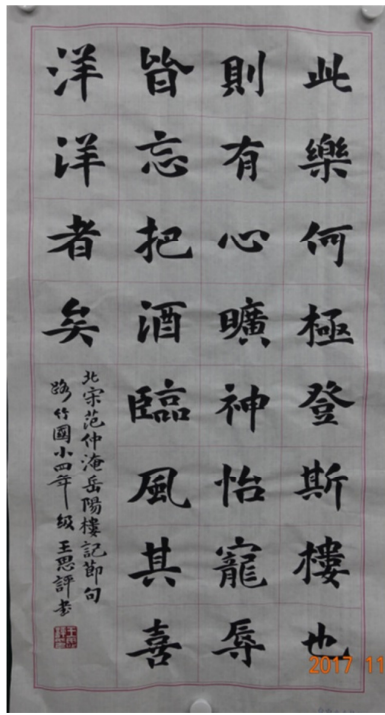 此樂何極登斯樓也
則有心曠神怡寵辱
皆忘把酒臨風其喜
洋洋者矣
北宋范仲淹岳陽樓記節句
路竹國小四年級王思評書
2017 11